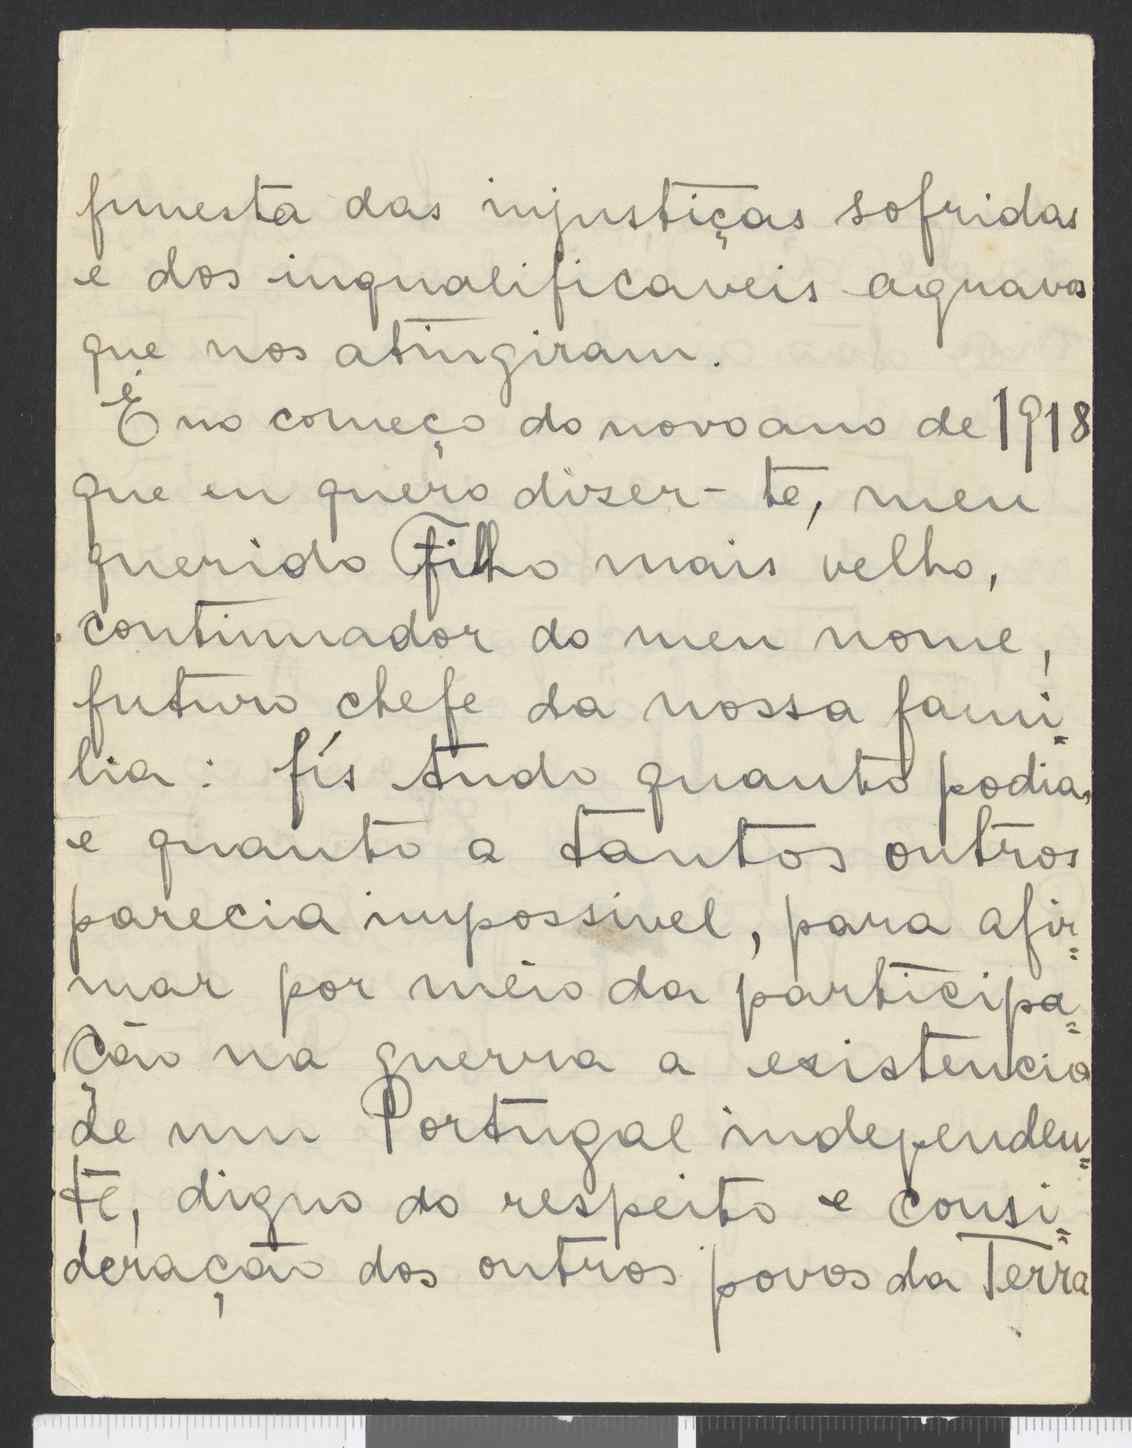 funesta das injustiças sofridas
e dos inqualificaveis agravos
que nos atingiram.
É no começo do novo ano de 1918
que eu quero dizer-te, meu
querido Filho mais velho,
continuador do meu nome,
futuro chefe da nossa fami=
lia: fís tudo quanto podia,
e quanto a tantos outros
parecia impossivel, para afir=
mar por meio da participa=
ção na guerra a existencia
de um Portugal independen=
te, digno do respeito e consi=
deração dos outros povos da Terra